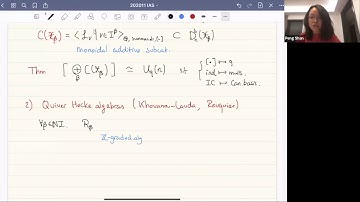 202011 IAS
C(X_β) = < L_ν | ν ∈ I^β >_{⊕, summands, [·]} ⊂ D^b_{G_β}(X_β)
monoidal additive subcat.
Thm [ ⊕_β C(X_β) ] ≃ U_q(n) st { [·] ↦ q
ind ↦ mult.
IC ↦ Can basis.
2) Quiver Hecke algebras (Khovanov-Lauda, Rouquier)
∀β∈NI. R_β
Z-graded alg
Peng Shan